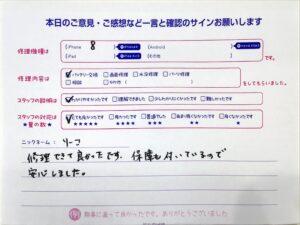 本日のご意見・ご感想など一言と確認のサインお願いします
修理機種は
iPhone 8
Android
iPad
その他
です。
修理内容は
✓バッテリー交換 □画面修理 □水没修理 □パーツ修理
□相談 □その他
をしてもらいました。
スタッフの説明は
✓わかりやすかったです □理解できました □少しわかりにくかったです □難しかったです
スタッフの対応は
★の数★
✓とても良かったです □良かったです □普通でした □あまり良くなかったです □良くなかった
★★★★★ ★★★★ ★★★ ★★ ★
ニックネーム：
修理できて良かったです。保障も付いているので
安心しました。
修理に違って良かったです。ありがとうございました